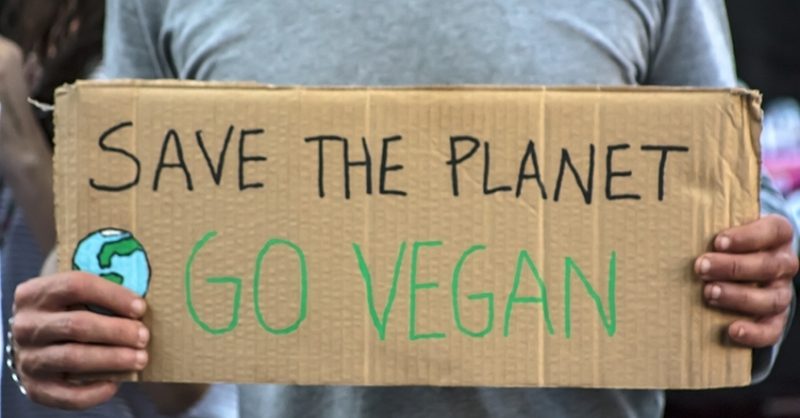 SAVE THE PLANET
GO VEGAN